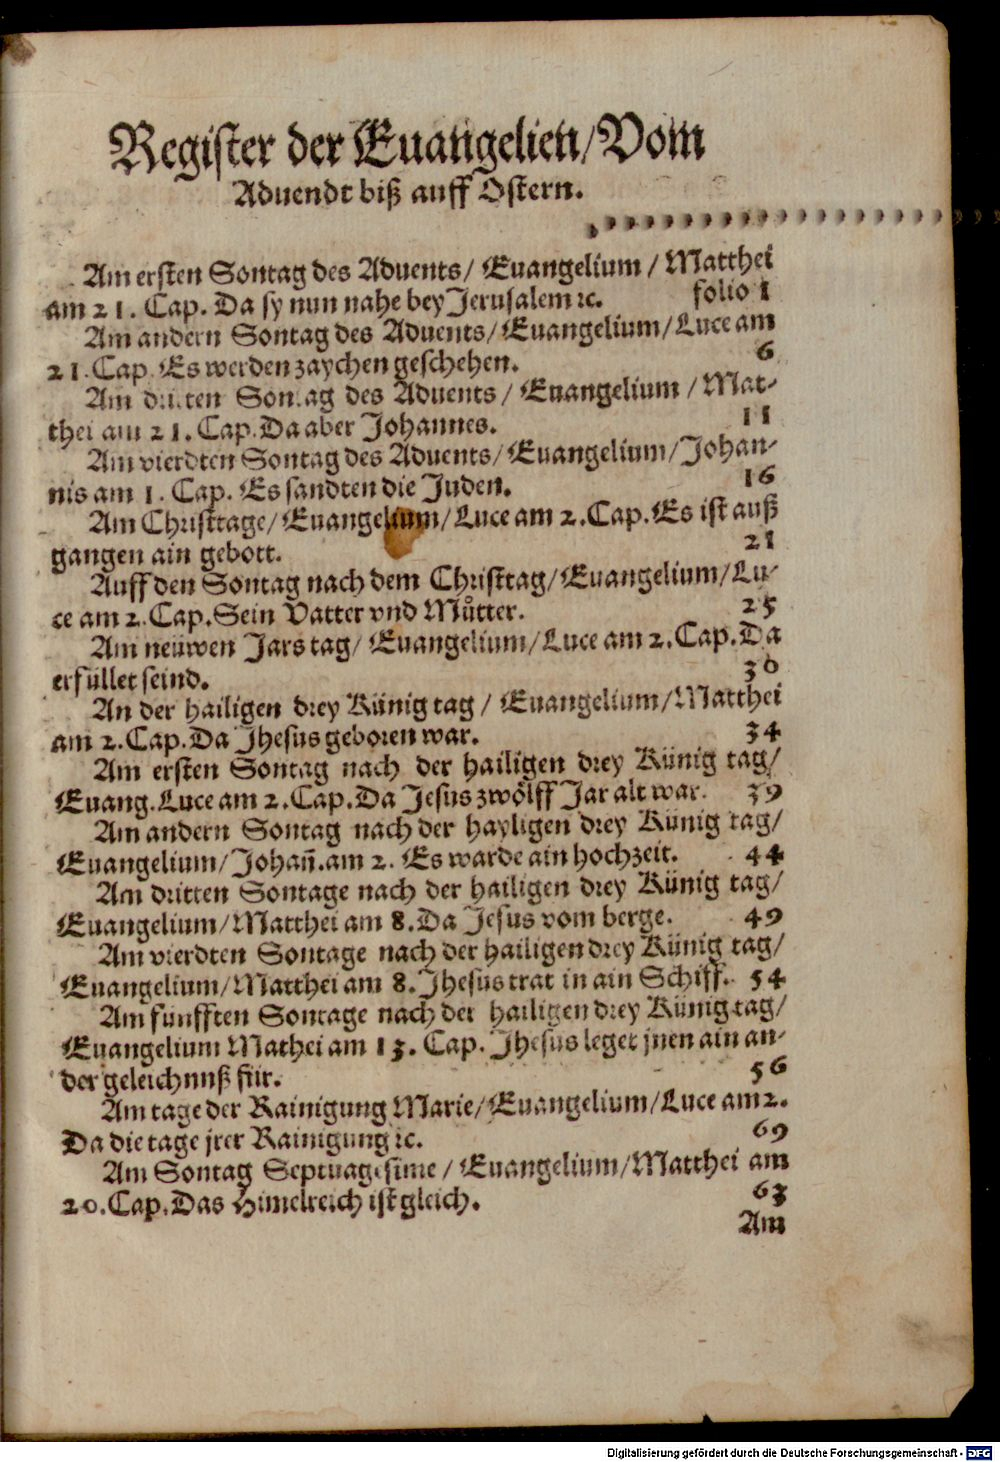 Register der Euangelien/Vom
Aduendt biß auff Ostern.
Am ersten Sontag des Aduents/ Euangelium / Matthei
am 21. Cap. Da sy nun nahe bey Jerusalem ꝛc. folio 1
Am andern Sontag des Aduents/Euangelium/Luce am
21. Cap. Es werden zaychen geschehen. 6
Am dritten Sontag des Aduents / Euangelium / Mat-
thei am 21. Cap. Da aber Johannes. 11
Am vierdten Sontag des Aduents/Euangelium/Johan-
nis am 1. Cap. Es sandten die Juden. 16
Am Christtage/Euangelium/Luce am 2. Cap. Es ist auß
gangen ain gebott. 21
Auff den Sontag nach dem Christtag/Euangelium/Lu-
ce am 2. Cap. Sein Vatter vnd Můtter. 25
Am neüwen Jars tag/ Euangelium/Luce am 2. Cap. Da
erfüllet seind. 30
An der hailigen drey Künig tag / Euangelium/Matthei
am 2. Cap. Da Jhesus geboren war. 34
Am ersten Sontag nach der hailigen drey Künig tag/
Euang. Luce am 2. Cap. Da Jesus zwölff Jar alt war. 39
Am andern Sontag nach der hayligen drey Künig tag/
Euangelium/Johañ. am 2. Es warde ain hochzeit. 44
Am dritten Sontage nach der hailigen drey Künig tag/
Euangelium/Matthei am 8. Da Jesus vom berge. 49
Am vierdten Sontage nach der hailigen drey Künig tag/
Euangelium/Matthei am 8. Jhesus trat in ain Schiff. 54
Am fünfften Sontage nach der hailigen drey Künig tag/
Euangelium Mathei am 13. Cap. Jhesus leget jnen ain an-
der geleichnuß für. 56
Am tage der Rainigung Marie/Euangelium/Luce am 2.
Da die tage jrer Rainigung ꝛc. 69
Am Sontag Septuagesime / Euangelium/Matthei am
20. Cap. Das Himelreich ist gleich. 63
Am
Digitalisierung gefördert durch die Deutsche Forschungsgemeinschaft - DFG